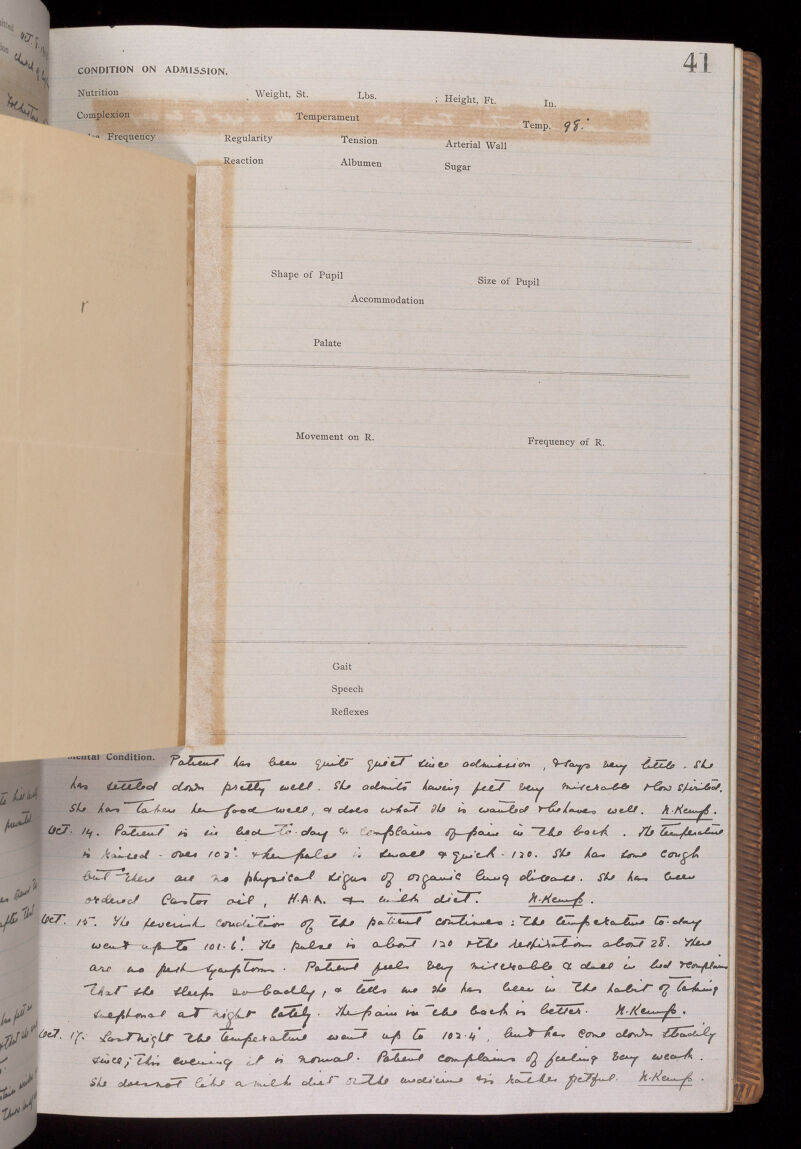 41
CONDITION ON ADMISSION.
Nutrition . Weight, St. Lbs. ; Height, Ft. In.
Complexion Temperament Temp. 98°
Frequency Regularity Tension Arterial Wall
Reaction Albumen Sugar
Shape of Pupil Size of Pupil
Accommodation
Palate
Movement on R. Frequency of R.
Gait
Speech
Reflexes
Mental Condition. Patient has been quite quiet since admission, & says very little. She
has settled down pretty well. She admits having felt very miserable & low spirited.
She has taken her food well, & does what she is wanted & behaves well. N. Kemp.
Oct. 14. Patient is in bed to-day & complains of pain in the back. The temperature
is raised - over 102°. & her pulse is small & quick - 120. She has some cough
but there are no physical signs of organic lung disease. She has been
ordered Castor oil, H.A.A. & milk diet. N. Kemp.
Oct. 15. The feverish condition of the patient continues: the temperature to-day
went up to 101.6°. The pulse is about 120 & the respirations about 28. There
are no fresh symptoms. Patient feels very miserable & dull in bed & complains
that she sleeps so badly, & tells me she has been in the habit of taking
sulphonal at night lately. The pain in the back is better. N. Kemp.
Oct. 17. Last night the temperature went up to 102.4°, but has come down steadily
since; this evening it is normal. Patient complains of feeling very weak.
She does not like a milk diet or the medicine & is rather fretful. N. Kemp.